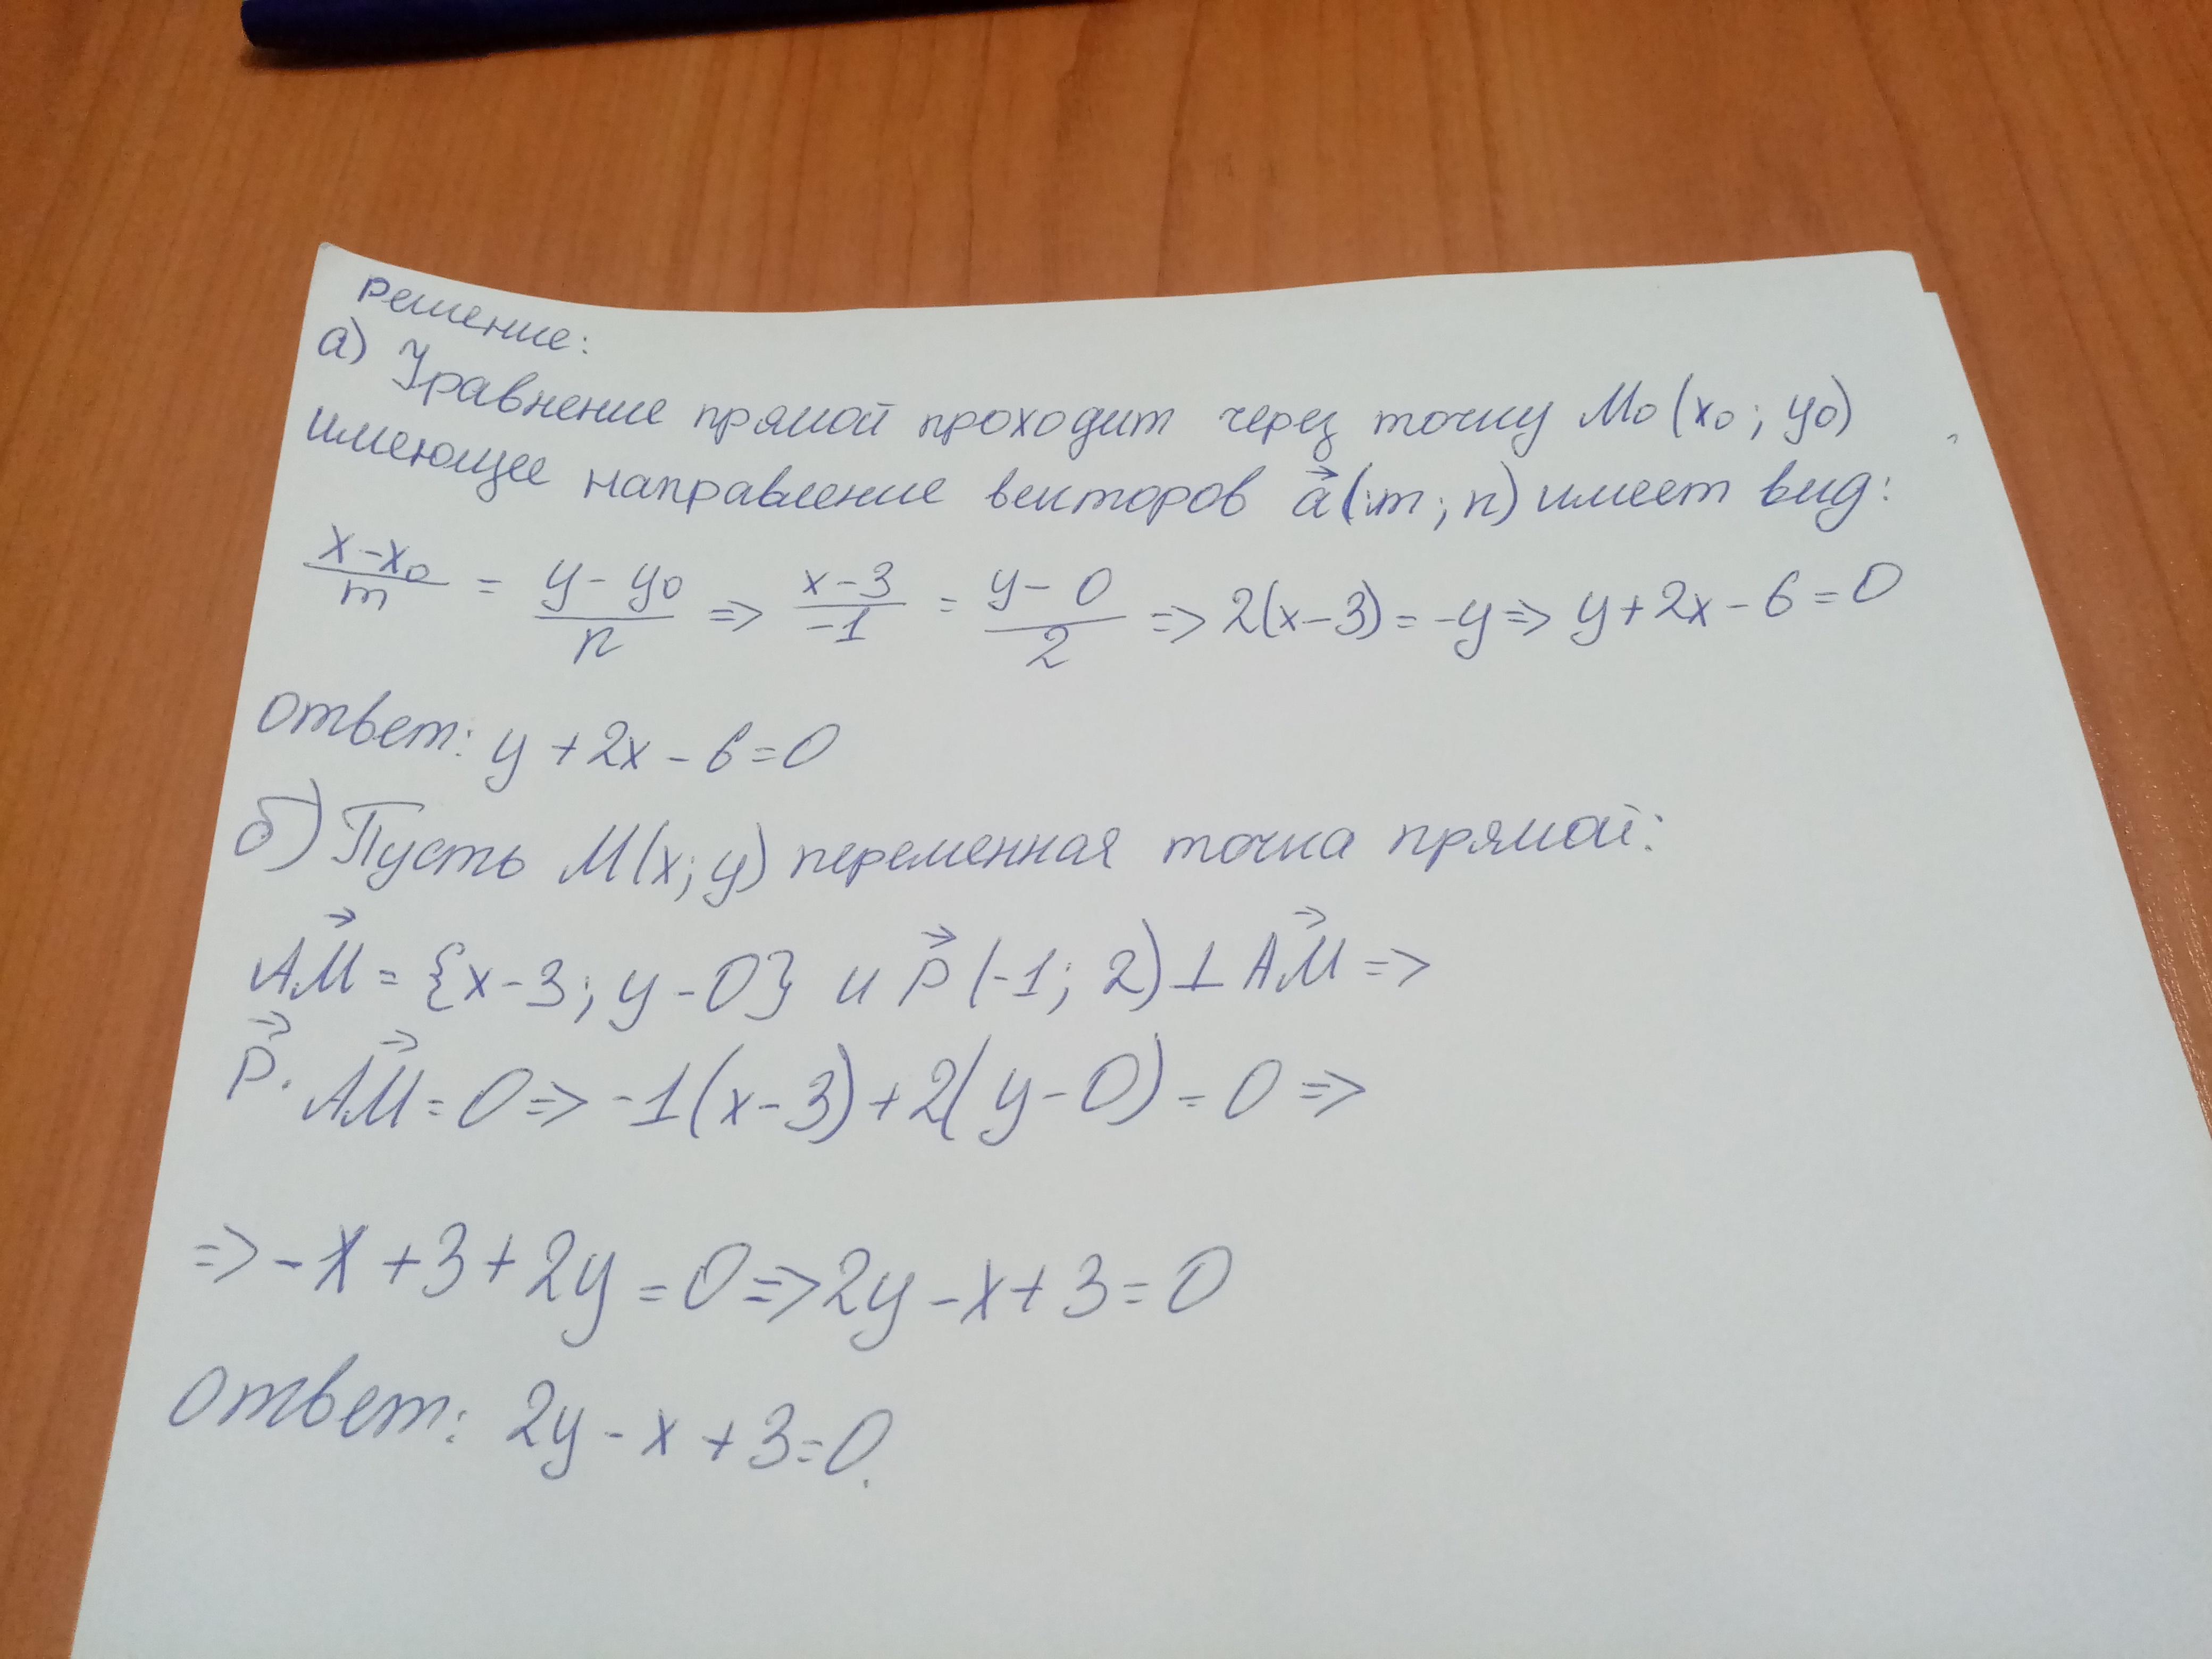 Решение:
а) Уравнение прямой проходит через точку M₀(x₀; y₀)
имеющее направление векторов a⃗(m; n) имеет вид:
(x-x₀)/m = (y-y₀)/n => (x-3)/-1 = (y-0)/2 => 2(x-3)=-y => y+2x-6=0
ответ: y+2x-6=0
б) Пусть M(x; y) переменная точка прямой:
AM⃗ = {x-3; y-0} и p⃗(-1; 2) ⊥ AM⃗ =>
p⃗ · AM⃗ = 0 => -1(x-3)+2(y-0)=0 =>
=> -x+3+2y=0 => 2y-x+3=0
ответ: 2y-x+3=0.